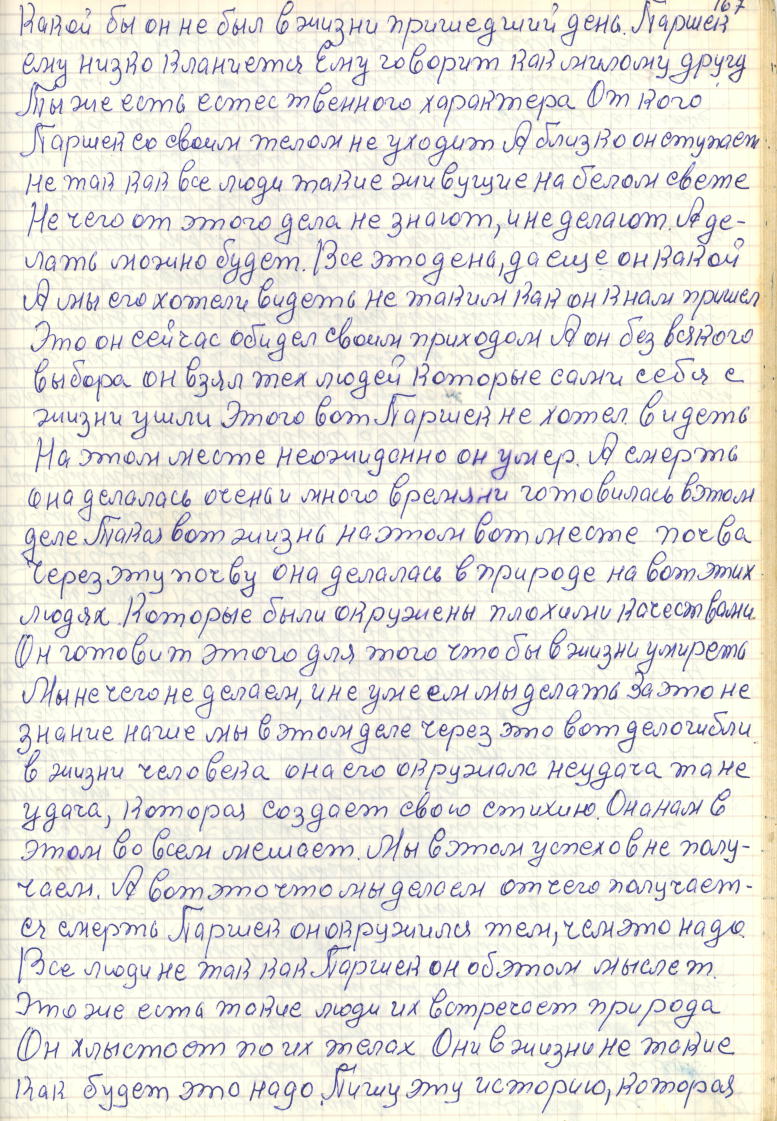 167
Какой бы он не был в жизни пришедший день. Паршек
ему низко кланиется Ему говорит как милому другу
Ты же есть естественного характера От кого
Паршек со своим телом не уходит А близко он ступает
не так как все люди такие живущие на белом свете
Не чего от этого дела не знают, и не делают. А де-
лать можно будет. Все это день, да еще он какой
А мы его хотели видеть не таким как он к нам пришел
Это он сейчас обидел своим приходом А он без всякого
выбора он взял тех людей которые сами себя с
жизни ушли Этого вот Паршек не хотел видеть
На этом месте неожиданно он умер. А смерть
она делалась очень и много время готовилась в этом
деле Такая вот жизнь на этом вот месте почва
Через эту почву она делалась в природе на вот этих
людях. Которые были окружены плохими качествами
Он готовит этого для того что бы в жизни умереть
Мы не чего не делаем, и не умеем мы делать За это не
знание наше мы в этом деле через это вот дело гибли
в жизни человека она его окружала неудача та не
удача, которая создает свою стихию. Она нам в
этом во всем мешает. Мы в этом успехов не полу-
чаем. А вот это что мы делаем от чего получает-
ся смерть Паршек он окружился тем, чем это надо.
Все люди не так как Паршек он об этом мыслет.
Это же есть такие люди их встречает природа
Он хлыстает по их телах Они в жизни не такие
как будет это надо. Пишу эту историю, которая